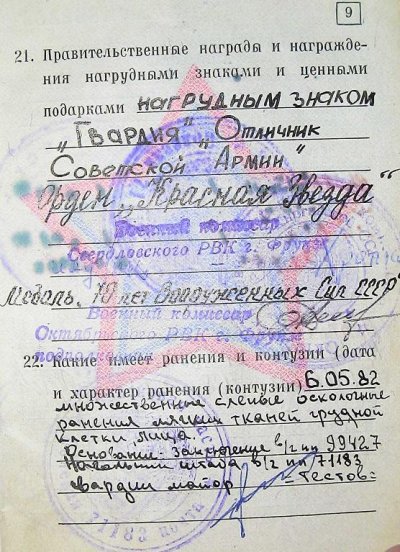 9
21. Правительственные награды и награжде-
ния нагрудными знаками и ценными
подарками нагрудным знаком
„Гвардия" „Отличник
Советской Армии"
Орден „Красная Звезда"
Военный комиссар
Свердловского РВК г. Фрунзе
Медаль „70 лет Вооруженных Сил СССР"
Военный комиссар
Октябрьского РВК г. Фрунзе
22. Какие имеет ранения и контузии (дата
и характер ранения (контузии) 6.05.82
множественные слепые осколочные
ранения мягких тканей грудной
клетки, лица.
Основание: заключение в/ч пп 99427
Начальник штаба в/ч пп 71183
гвардии майор Тестов
71183